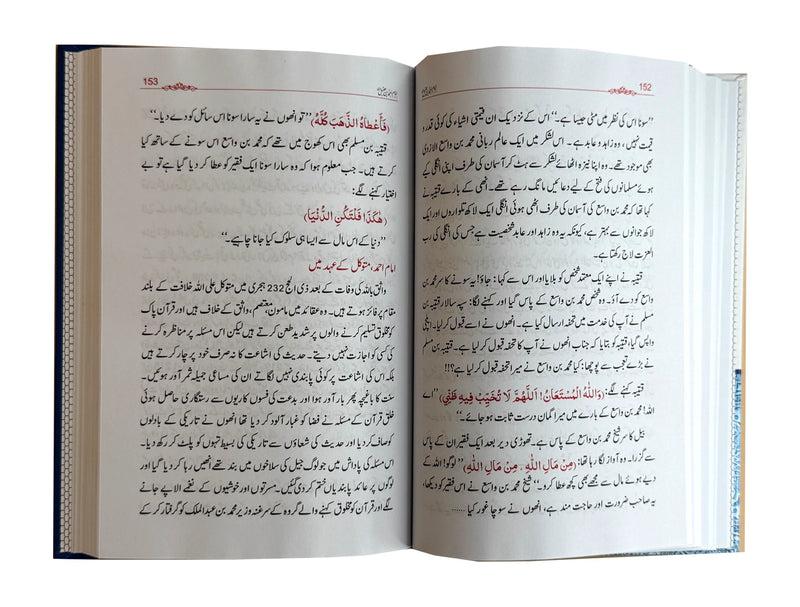 152
”سونا اس کی نظر میں مٹی جیسا ہے۔“ اس کے نزدیک ان قیمتی اشیاء کی کوئی قدر و
قیمت نہیں، وہ زاہد و عابد ہے۔ اس لشکر میں ایک عالم ربانی محمد بن واسع الازدی
بھی موجود تھے۔ وہ اپنا نیزہ اٹھائے لشکر سے ہٹ کر آسمان کی طرف اپنی انگلی کیے
ہوئے مسلمانوں کی فتح کے لیے دعائیں مانگ رہے تھے۔ انھی کے بارے قتیبہ نے
کہا تھا کہ محمد بن واسع کی آسمان کی طرف اٹھی ہوئی انگلی ایک لاکھ تلواروں اور ایک لاکھ
جوانوں سے بہتر ہے، کیونکہ یہ وہ زاہد اور عابد شخصیت ہے جس کی انگلی کی رب
العزت لاج رکھتا ہے۔
قتیبہ نے اپنے ایک معتمد شخص کو بلایا اور اس سے کہا: جاؤ! یہ سونے کا سر محمد بن
واسع کو دے آؤ۔ وہ شخص محمد بن واسع کے پاس گیا اور کہنے لگا: سپہ سالار قتیبہ بن
مسلم نے آپ کی خدمت میں تحفہ ارسال کیا ہے۔ انھوں نے اسے قبول کر لیا۔ ایلچی
واپس گیا، قتیبہ کو بتایا کہ جناب انھوں نے آپ کا تحفہ قبول کر لیا ہے۔ قتیبہ بن مسلم
نے بڑے تعجب سے پوچھا: کیا محمد بن واسع نے میرا تحفہ قبول کر لیا ہے؟!!
قتیبہ کہنے لگے: ﴿وَاللّٰهُ الْمُسْتَعَانُ! اَللّٰهُمَّ لَا تُخَيِّبْ فِيهِ ظَنِّي﴾ ”اے
اللہ! محمد بن واسع کے بارے میں میرا گمان درست ثابت ہو جائے۔“
بیل کا سر شیخ محمد بن واسع کے پاس ہے۔ تھوڑی دیر بعد ایک فقیر ان کے پاس
سے گزرا۔ وہ آواز لگا رہا تھا: ﴿مِنْ مَالِ اللّٰهِ، مِنْ مَالِ اللّٰهِ﴾ ”لوگو! اللہ کے
دیے ہوئے مال سے مجھے بھی کچھ عطا کرو۔“ شیخ محمد بن واسع نے اس فقیر کو دیکھا،
یہ صاحب ضرورت اور حاجت مند ہے، انھوں نے سوچا غور کیا ......
153
﴿فَأَعْطَاهُ الذَّهَبَ كُلَّهُ﴾ ”تو انھوں نے یہ سارا سونا اس سائل کو دے دیا۔“
قتیبہ بن مسلم بھی اس کھوج میں تھے کہ محمد بن واسع اس سونے کے ساتھ کیا
کرتے ہیں۔ جب معلوم ہوا کہ وہ سارا سونا ایک فقیر کو عطا کر دیا گیا ہے تو بے
اختیار کہنے لگے:
﴿هٰكَذَا فَلْتَكُنِ الدُّنْيَا﴾
”دنیا کے اس مال سے ایسا ہی سلوک کیا جانا چاہیے۔“
امام احمد، متوکل کے عہد میں
واثق باللہ کی وفات کے بعد ذی الحج 232 ہجری میں متوکل علی اللہ خلافت کے بلند
مقام پر فائز ہوتے ہیں۔ وہ عقائد میں مامون، معتصم، واثق کے خلاف ہیں اور قرآن پاک
کو مخلوق تسلیم کرنے والوں پر شدید طعن کرتے ہیں لیکن اس مسئلہ پر مناظرہ کرنے
کی کسی کو اجازت نہیں دیتے۔ حدیث کی اشاعت کا نہ صرف خود پر چار کرتے ہیں
بلکہ اس کی اشاعت پر کوئی پابندی نہیں لگاتے ان کی مساعی جمیلہ ثمر آور ہوئیں۔
سنت کا باغیچہ پھر بار آور ہوا اور بدعت کی فسوں کاریوں سے رستگاری حاصل ہوئی
خلق قرآن کے مسئلہ نے فضا کو غبار آلود کر دیا تھا انھوں نے تاریکی کے بادلوں
کو صاف کر دیا اور حدیث کی شعاؤں سے تاریکی کی بسیط تہوں کو پلٹ کر رکھ دیا۔
اس مسئلہ کی پاداش میں جو لوگ جیل کی سلاخوں میں بند تھے انھیں رہا کر دیا گیا اور
لوگوں پر عائد پابندیاں ختم کر دی گئیں۔ مسرتوں اور خوشیوں کے نغمے الاپے جانے
لگے اور قرآن کو مخلوق کہنے والے گروہ کے سرغنہ وزیر محمد بن عبد الملک کو گرفتار کر کے